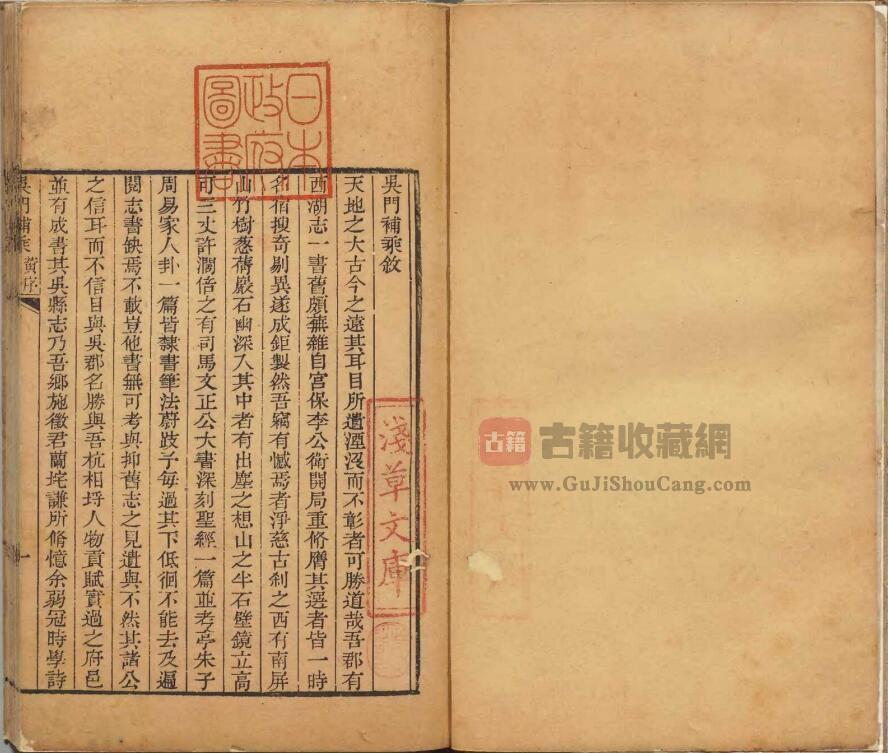 吳門補乘敘
天地之大古今之遠其耳目所遺湮沒而不彰者可勝道哉吾郡有
西湖志一書舊頗蕪雜自宮保李公衛開局重脩膺其選者皆一時
名宿搜奇剔異遂成鉅製然吾竊有憾焉者淨慈古刹之西有南屏
山竹樹葱蒨巖石幽深入其中者有出塵之想山之半石壁鏡立高
可三丈許濶倍之有司馬文正公大書深刻聖經一篇並考亭朱子
周易家人卦一篇皆隸書筆法蔚跂予每過其下低徊不能去及遍
閱志書缺焉不載豈他書無可考與抑舊志之見遺與不然其諸公
之信耳而不信目與吳郡名勝與吾杭相埒人物貢賦實過之府邑
並有成書其吳縣志乃吾鄉施徵君蘭垞謙所脩憶余弱冠時學詩
吳門補乘 黃序
一
日本
政府
圖書
淺草文庫
古籍
古籍收藏網
www.GuJiShouCang.com